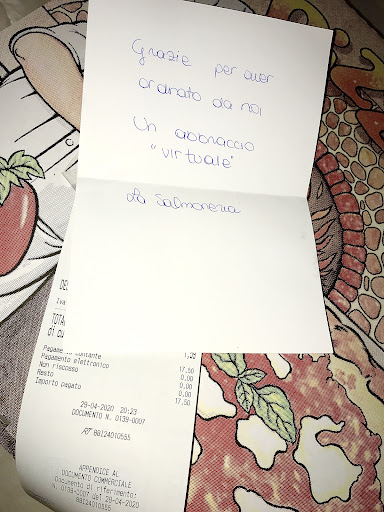 Grazie per aver
ordinato da noi
Un abbraccio
"virtuale"
La Salmoneria
DE
Iva
TOTA
di cu
1,28
Pagamento contante
Pagamento elettronico
17,50
Non riscosso
0,00
Resto
0,00
Importo pagato
17,50
29-04-2020 20:23
DOCUMENTO N. 0139-0007
RT 88I24010555
APPENDICE AL
DOCUMENTO COMMERCIALE
Documento di riferimento:
N. 0139-0007 del 29-04-2020
88I24010555